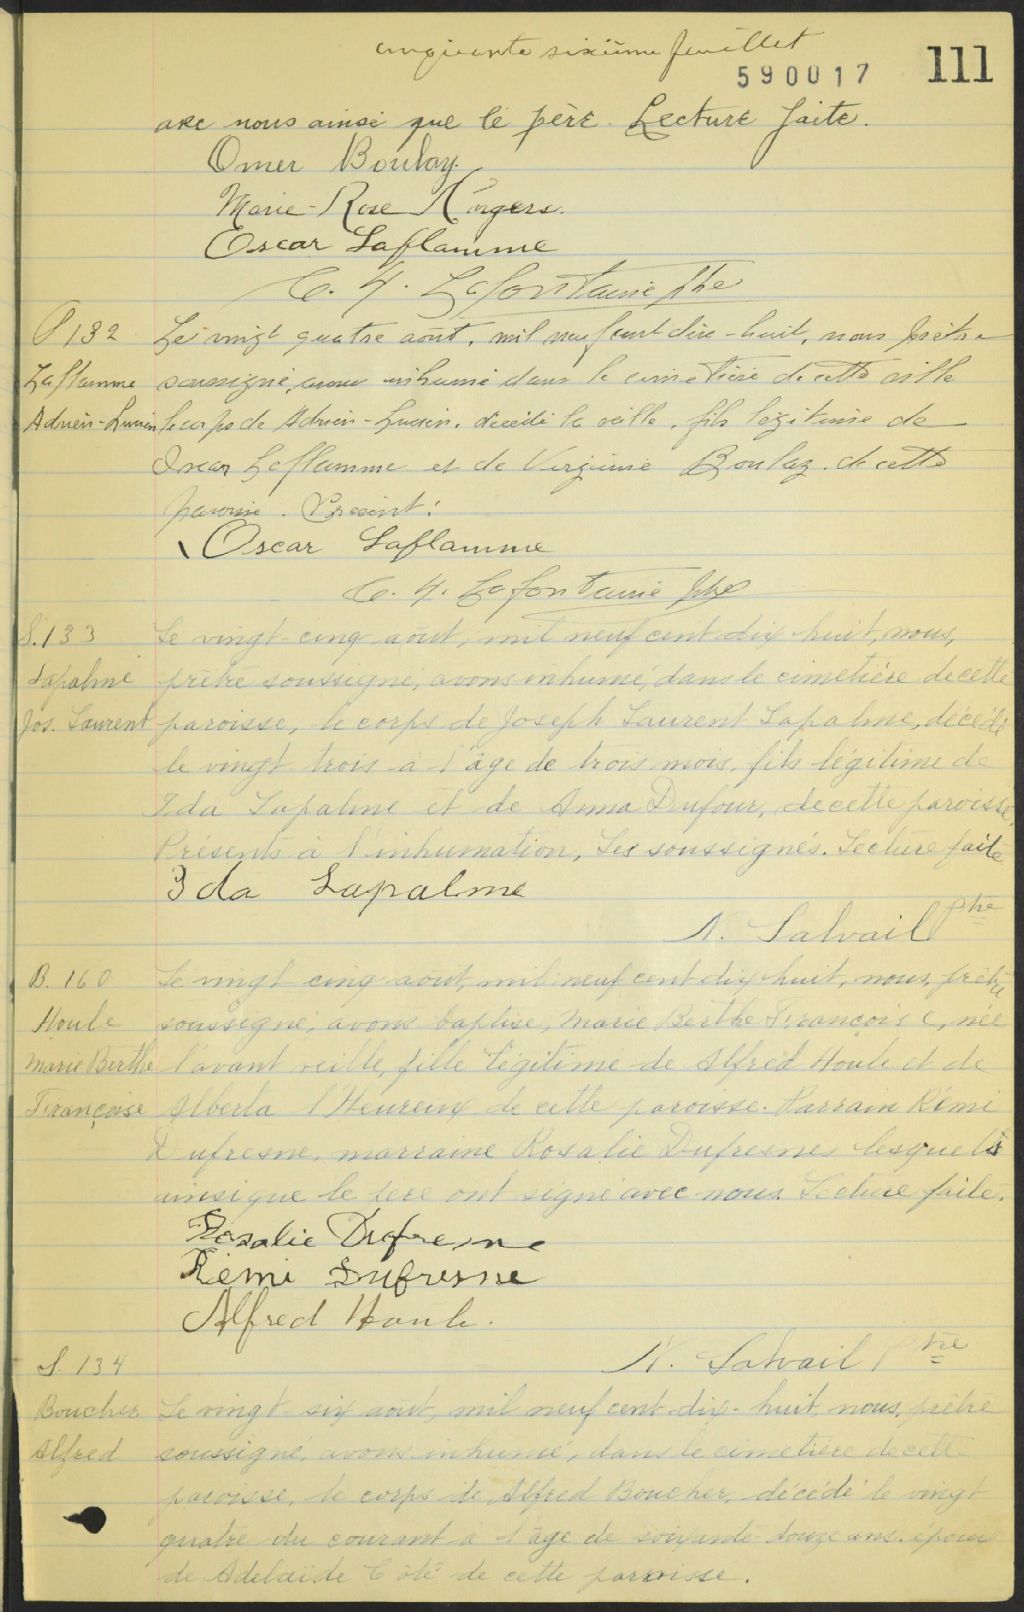 cinquante sixième feuillet
590017 111
avec nous ainsi que le père. Lecture faite.
Omer Boulay.
Marie-Rose
Oscar Laflamme
C. H. Lafontaine ptre
132
Le vingt quatre août, mil neuf cent dix-huit, nous prêtre
Laflamme
soussigné, avons inhumé dans le cimetière de cette ville
Adrien-Lucien
le corps de Adrien-Lucien, décédé la veille, fils légitime de
Oscar Laflamme et de Virginie Boulay de cette
paroisse. Présent:
Oscar Laflamme
C. H. Lafontaine ptre
S. 133
Le vingt-cinq août, mil neuf cent dix huit, nous,
Lapalme
prêtre soussigné, avons inhumé, dans le cimetière de cette
Jos. Laurent
paroisse, le corps de Joseph Laurent Lapalme, décédé
le vingt trois à l'âge de trois mois, fils légitime de
Ida Lapalme et de Anna Dufour, de cette paroisse.
Présents à l'inhumation, les soussignés. Lecture faite
Ida Lapalme
N. Salvail Ptre
B. 160
Le vingt cinq août, mil neuf cent dix huit, nous, prêtre
Houle
soussigné, avons baptisé, Marie Berthe Françoise, née
Marie Berthe
l'avant veille, fille légitime de Alfred Houle et de
Françoise
Alberta l'Heureux de cette paroisse. Parrain Rémi
Dufresne, marraine Rosalie Dufresne lesquels
ainsi que le père ont signé avec nous. Lecture faite.
Rosalie Dufresne
Rémi Dufresne
Alfred Houle.
N. Salvail Ptre
S. 134
Boucher
Le vingt-six août, mil neuf cent dix-huit, nous, prêtre
Alfred
soussigné, avons inhumé, dans le cimetière de cette
paroisse, le corps de Alfred Boucher, décédé le vingt
quatre du courant à l'âge de soixante douze ans. époux
de Adelaide Côté de cette paroisse.